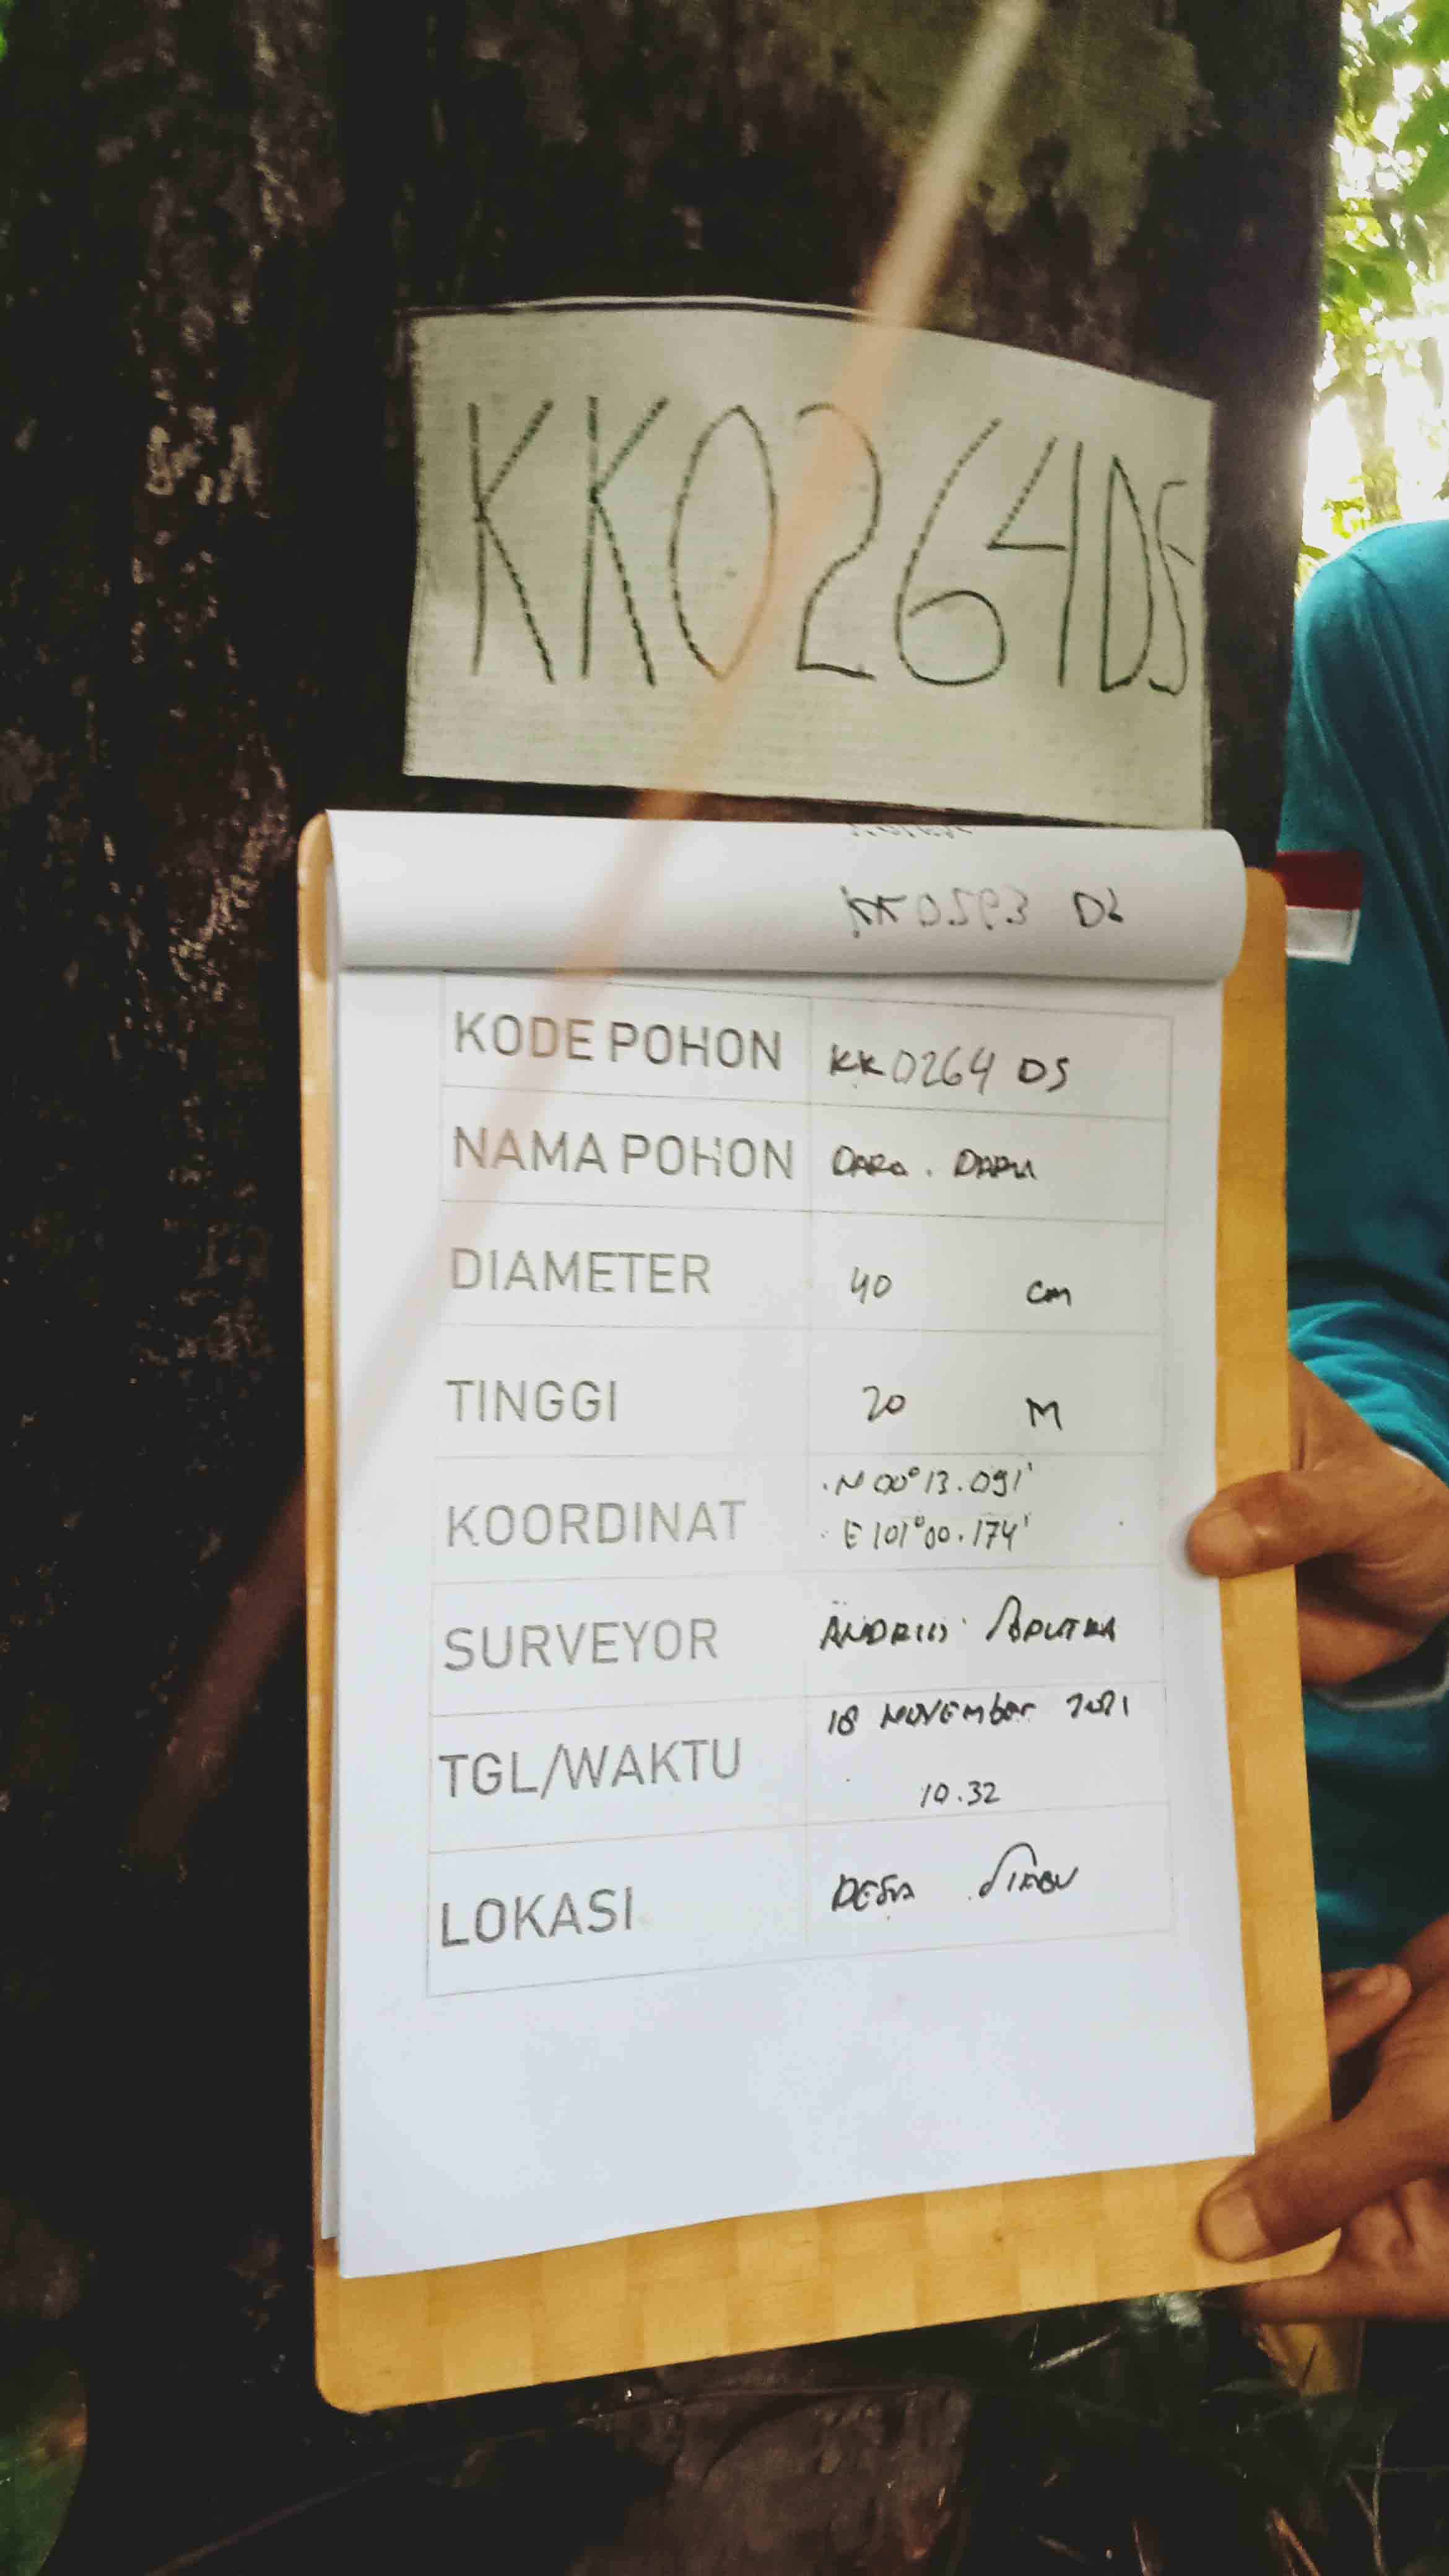 KK0264DS
KODE POHON KK0264 DS
NAMA POHON DARA. DARU
DIAMETER 40 cm
TINGGI 20 M
KOORDINAT N 00°13.091'
E 101°00.174'
SURVEYOR ANDRIS SAPUTRA
TGL/WAKTU 18 NOVEMber 2021
10.32
LOKASI DESA SIABU